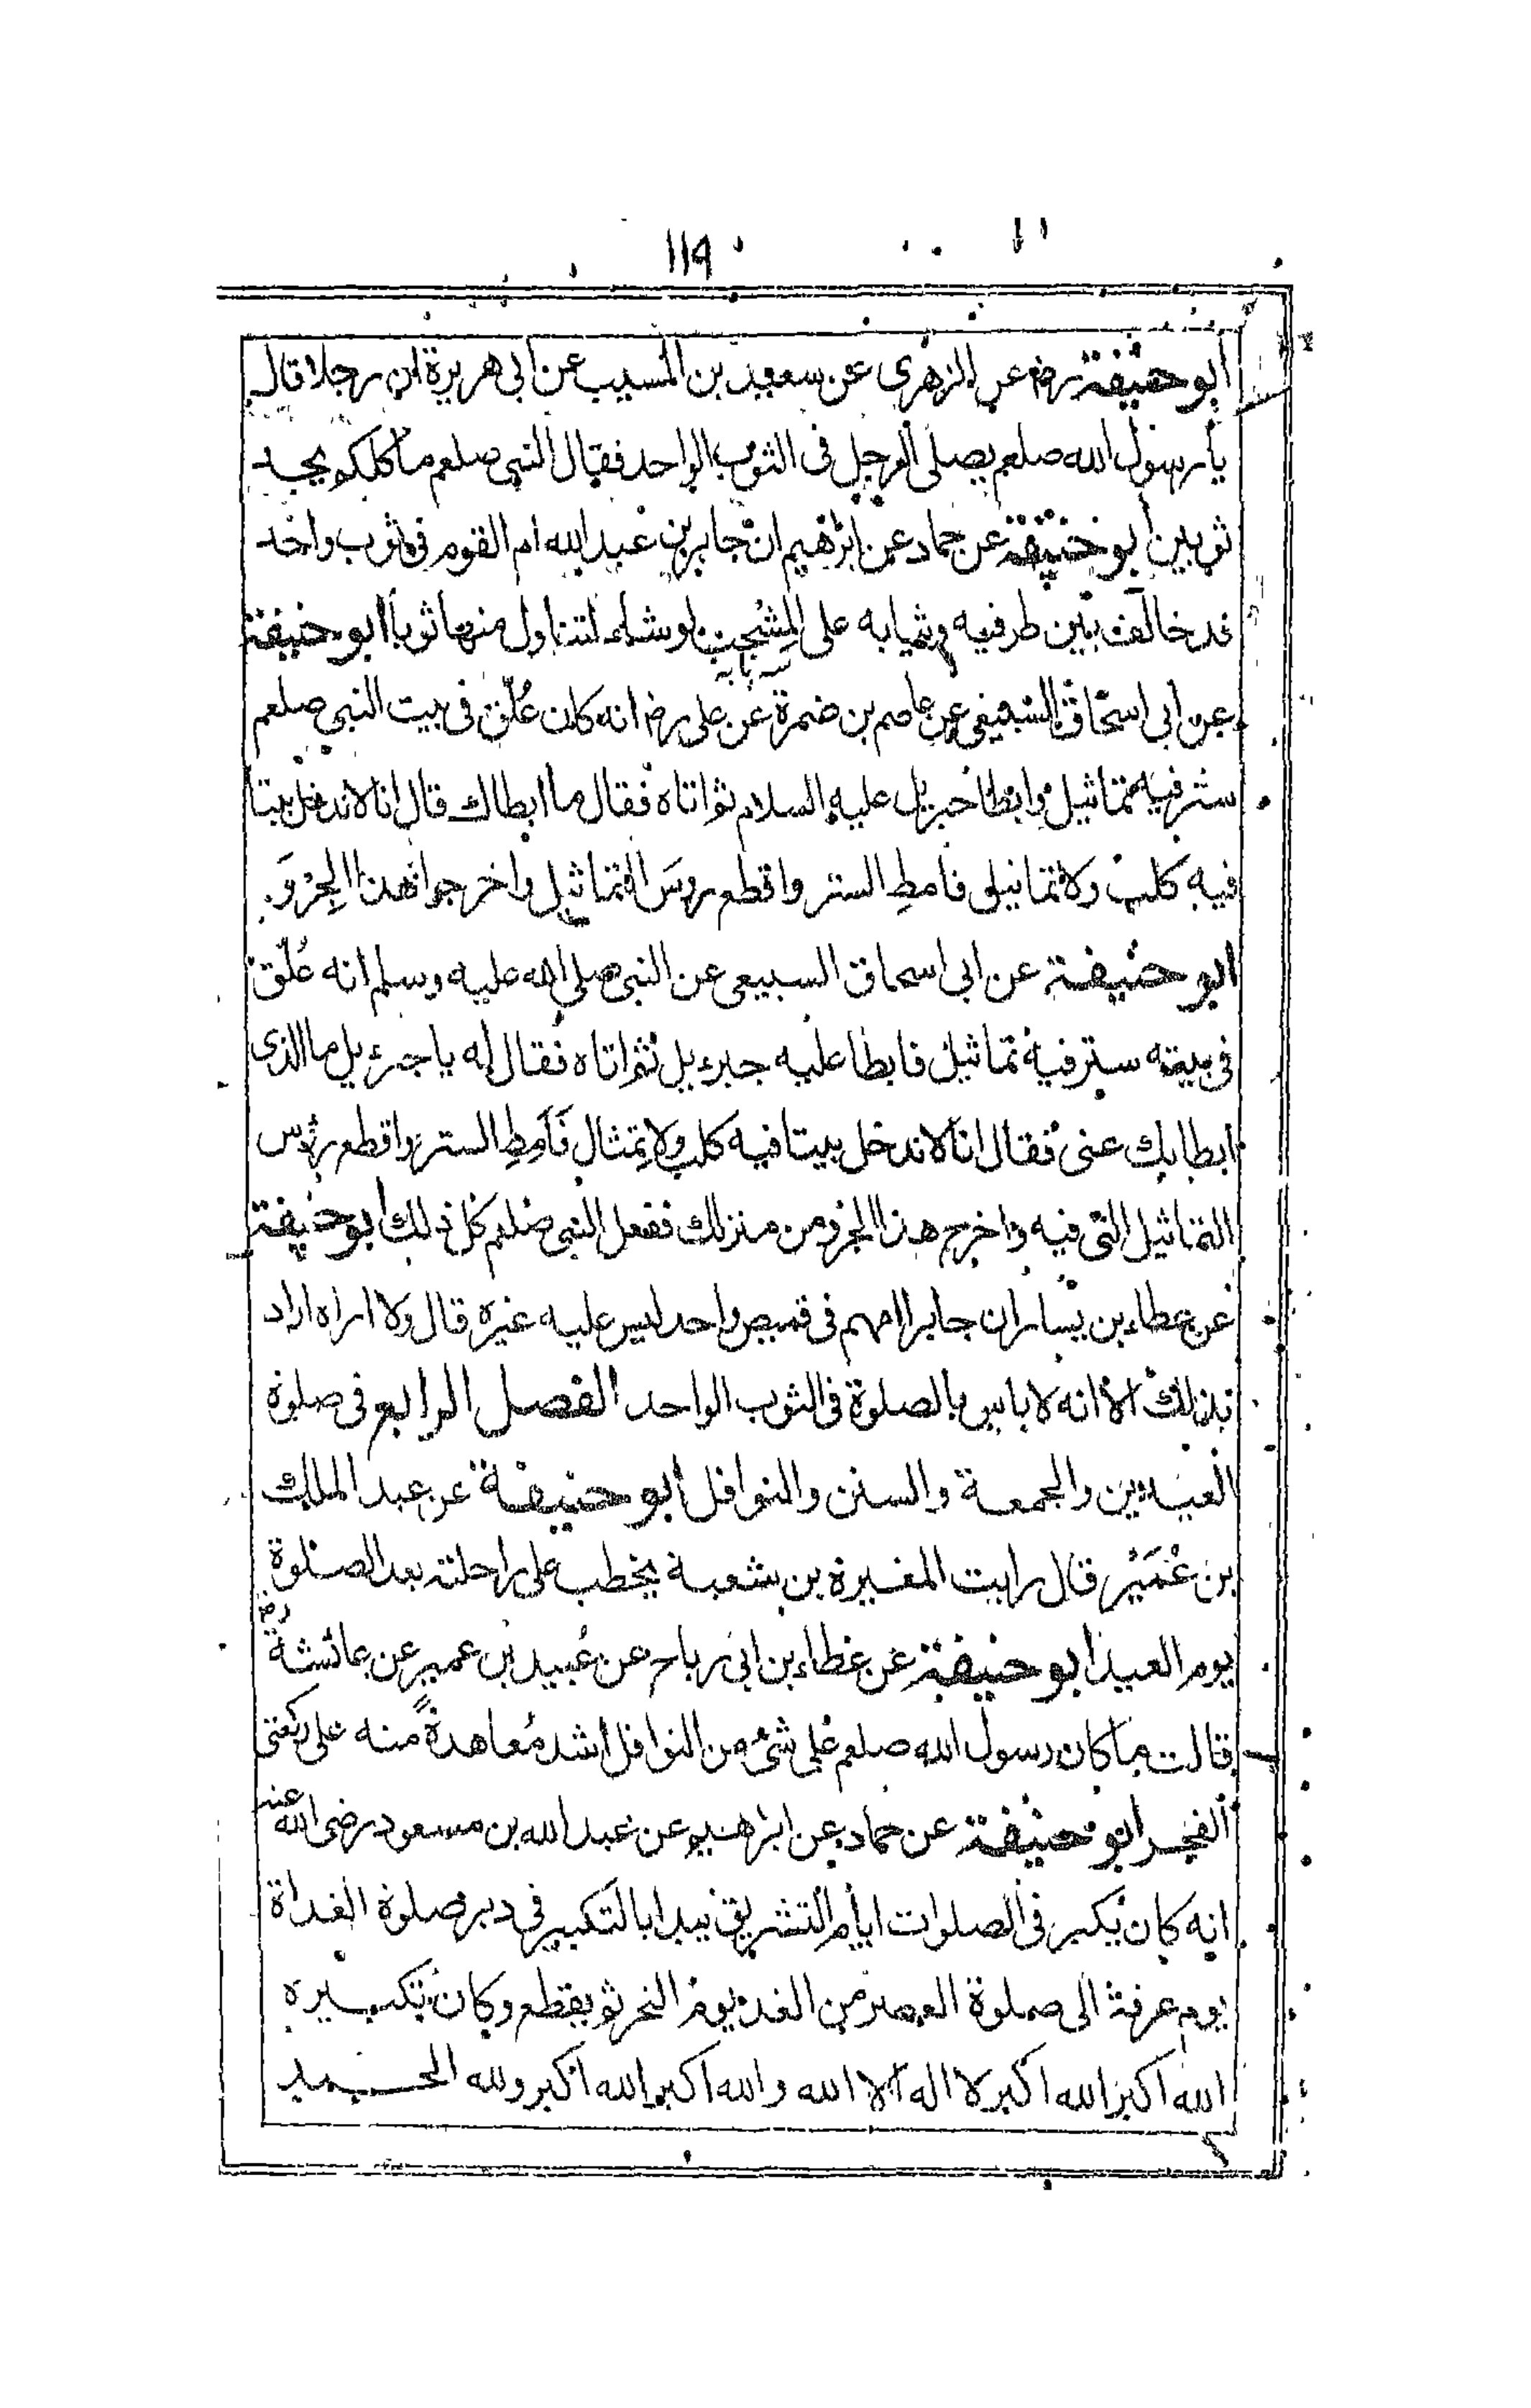 ١١٩
أبو حنيفة رضـ عن الزهرى عن سعيد بن المسيب عن ابى هريرة ان رجلا قال
يا رسول الله صلعم يصلى الرجل فى الثوب الواحد فقال النبى صلعم ما كلكم يجد
ثوبين أبو حنيفة عن حماد عن ابرٰهيم ان جابر بن عبد الله ام القوم فى ثوب واحد
قد خالف بين طرفيه وثيابه على المِشْجب لو شاء لتناول منها ثوبا ابو حنيفة
عن ابى اسحاق السبيعى عن عاصم بن ضمرة عن على رضـ انه كان عُلّق فى بيت النبى صلعم
ستر فيه تماثيل وابطا جبريل عليه السلام ثم اتاه فقال ما ابطاك قال انا لا ندخل بيتا
فيه كلب ولا تماثيل فامطِ الستر واقطع روسَ التماثيل واخرجوا هذا الجِرْوَ
ابو حنيفة عن ابى اسحاق السبيعى عن النبى صلى الله عليه وسلم انه عُلّق
فى بيته ستر فيه تماثيل فابطا عليه جبرءيل ثم اتاه فقال له يا جبرءيل ما الذى
ابطا بك عنى فقال انا لا ندخل بيتا فيه كلب ولا تمثال فَاَمِطِ الستر واقطع رؤس
التماثيل التى فيه واخرج هذا الجرو من منزلك ففعل النبى صلعم كل ذلك ابو حنيفة
عن عطاء بن يسار ان جابرا امهم فى قميص واحد ليس عليه غيره قال ولا اراه اراد
بذلك الا انه لا باس بالصلوة فى الثوب الواحد الفصل الرابع فى صلوة
العيدين والجمعة والسنن والنوافل أبو حنيفة عن عبد الملك
بن عُمَيْر قال رايت المغيرة بن شعبة يخطب على راحلته بعد الصلوة
يوم العيد ابو حنيفة عن عطاء بن ابى رباح عن عُبيد بن عمير عن عائشة رضـ
قالت ما كان رسول الله صلعم على شئ من النوافل اشد مُعاهدةً منه على ركعتى
الفجر ابو حنيفة عن حماد عن ابرٰهيم عن عبد الله بن مسعود رضى الله عنه
انه كان يكبر فى الصلوات ايام التشريق يبدا بالتكبير فى دبر صلوة الغداة
يوم عرفة الى صلوة العصر من الغد يوم النحر ثم يقطع وكان تكبيره
الله اكبر الله اكبر لا اله الا الله والله اكبر الله اكبر ولله الحمد